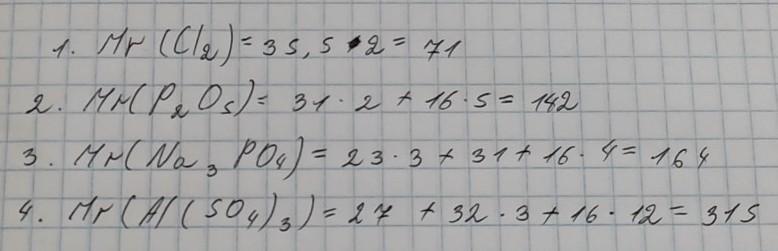 1. Mr (Cl₂) = 35,5 · 2 = 71
2. Mr (P₂O₅) = 31 · 2 + 16 · 5 = 142
3. Mr (Na₃PO₄) = 23 · 3 + 31 + 16 · 4 = 164
4. Mr (Al(SO₄)₃) = 27 + 32 · 3 + 16 · 12 = 315